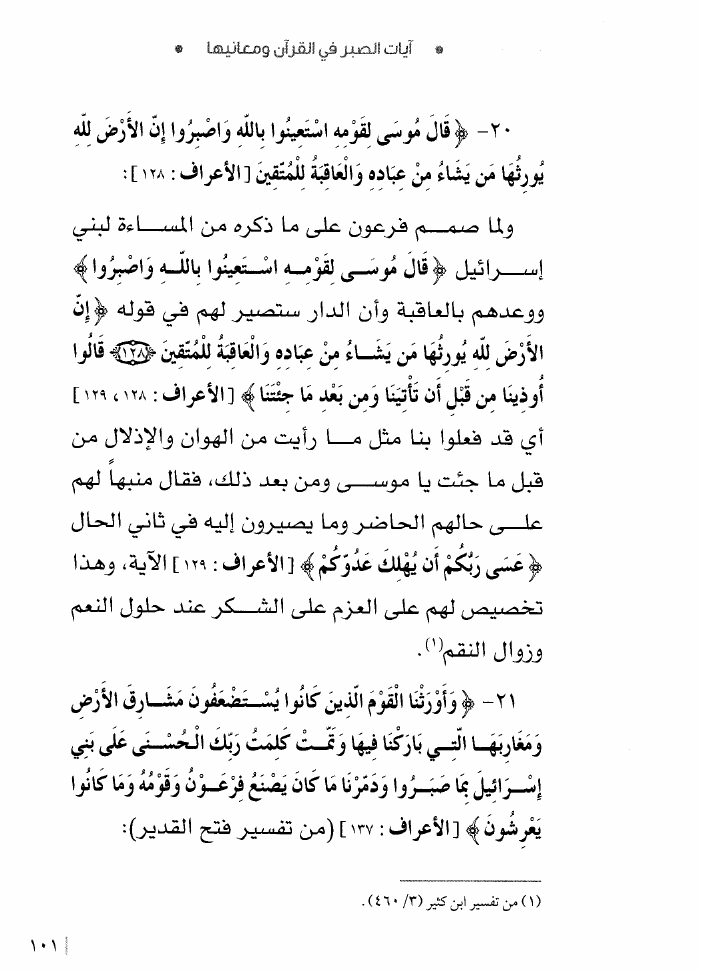 * آيات الصبر في القرآن ومعانيها *
٢٠- ﴿قَالَ مُوسَى لِقَوْمِهِ اسْتَعِينُوا بِاللَّهِ وَاصْبِرُوا إِنَّ الأَرْضَ لِلَّهِ
يُورِثُهَا مَن يَشَاءُ مِنْ عِبَادِهِ وَالْعَاقِبَةُ لِلْمُتَّقِينَ [الأعراف: ١٢٨]:
ولما صمم فرعون على ما ذكره من المساءة لبني
إسرائيل ﴿قَالَ مُوسَى لِقَوْمِهِ اسْتَعِينُوا بِاللَّهِ وَاصْبِرُوا﴾
ووعدهم بالعاقبة وأن الدار ستصير لهم في قوله ﴿إِنَّ
الأَرْضَ لِلَّهِ يُورِثُهَا مَن يَشَاءُ مِنْ عِبَادِهِ وَالْعَاقِبَةُ لِلْمُتَّقِينَ ﴿١٢٨﴾ قَالُوا
أُوذِينَا مِن قَبْلِ أَن تَأْتِيَنَا وَمِن بَعْدِ مَا جِئْتَنَا﴾ [الأعراف: ١٢٨، ١٢٩]
أي قد فعلوا بنا مثل ما رأيت من الهوان والإذلال من
قبل ما جئت يا موسى ومن بعد ذلك، فقال منبهاً لهم
على حالهم الحاضر وما يصيرون إليه في ثاني الحال
﴿عَسَى رَبُّكُمْ أَن يُهْلِكَ عَدُوَّكُمْ﴾ [الأعراف: ١٢٩] الآية، وهذا
تخصيص لهم على العزم على الشكر عند حلول النعم
وزوال النقم(١).
٢١- ﴿وَأَوْرَثْنَا الْقَوْمَ الَّذِينَ كَانُوا يُسْتَضْعَفُونَ مَشَارِقَ الأَرْضِ
وَمَغَارِبَهَا الَّتِي بَارَكْنَا فِيهَا وَتَمَّتْ كَلِمَتُ رَبِّكَ الْحُسْنَى عَلَى بَنِي
إِسْرَائِيلَ بِمَا صَبَرُوا وَدَمَّرْنَا مَا كَانَ يَصْنَعُ فِرْعَوْنُ وَقَوْمُهُ وَمَا كَانُوا
يَعْرِشُونَ﴾ [الأعراف: ١٣٧] (من تفسير فتح القدير):
(١) من تفسير ابن كثير (٣/ ٤٦٠).
١٠١